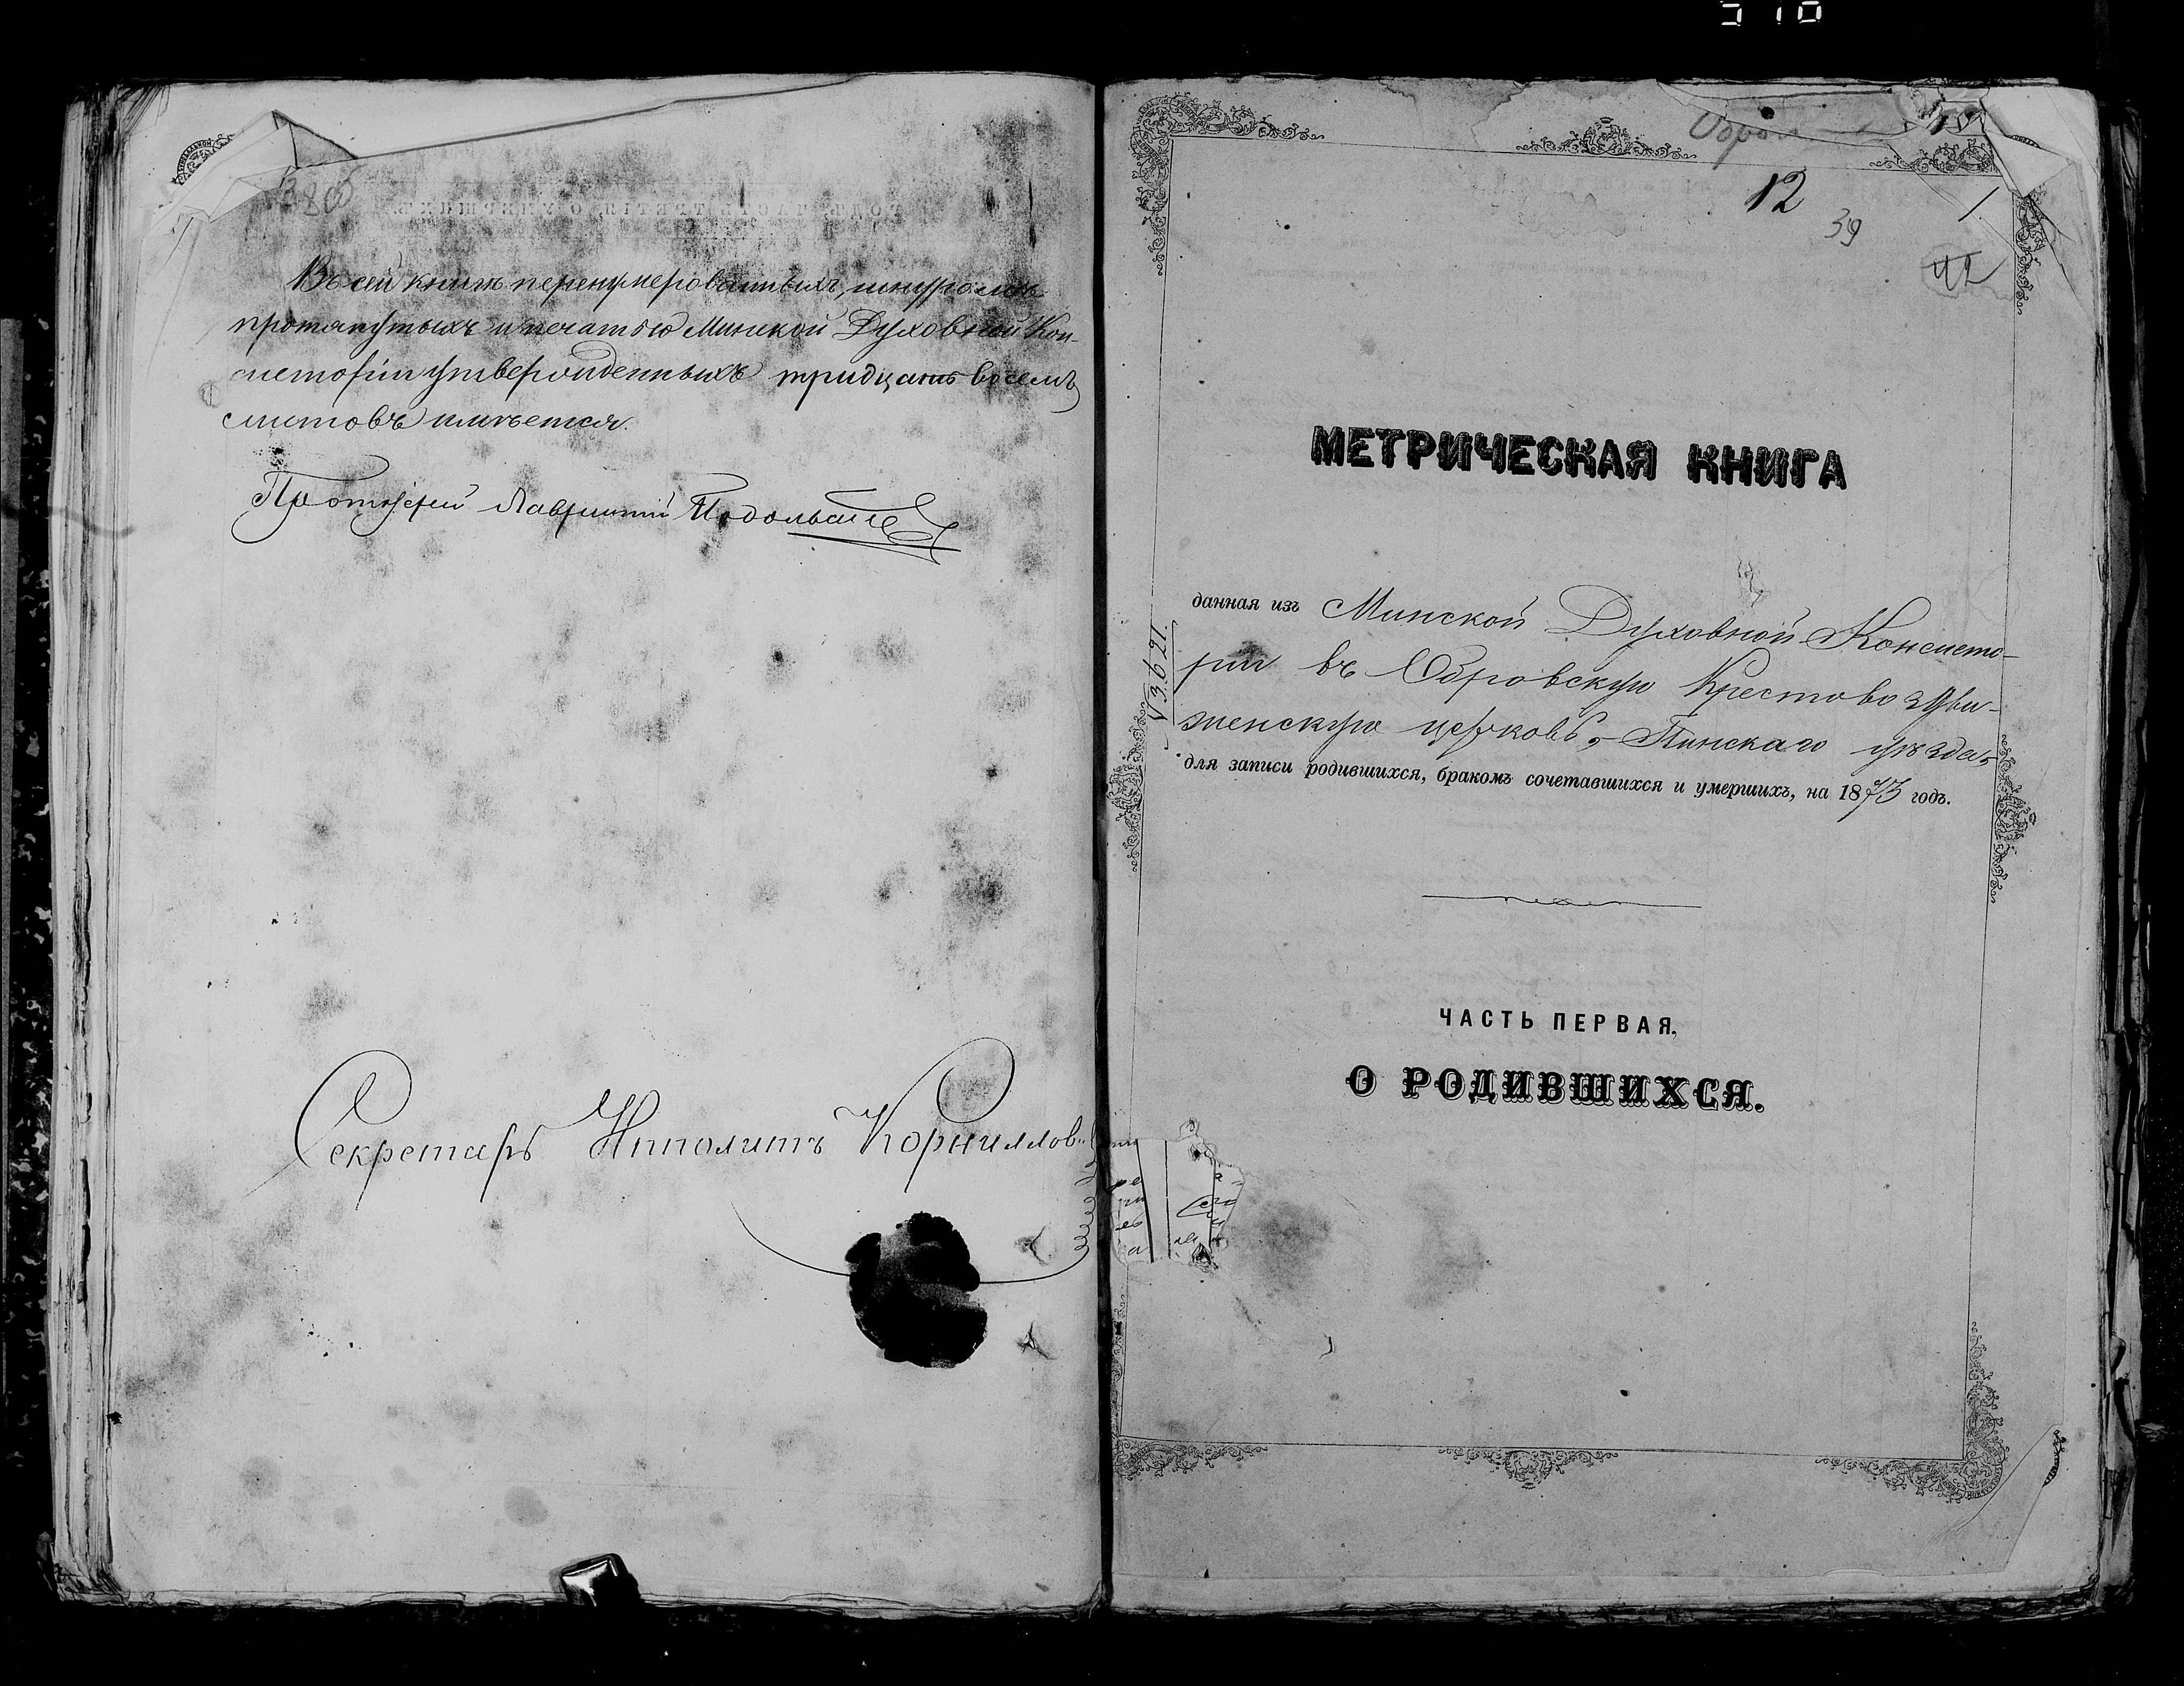 Въ сей книгѣ перенумерованныхъ, шнуромъ
протянутыхъ и печатью Минской Духовной Кон-
систоріи утвержденныхъ тридцать восемь
листовъ имѣется.
Протоіерей Лаврентій Подольскій
Секретарь Ипполитъ Корниллов
12
39
1
42
МЕТРИЧЕСКАЯ КНИГА
данная изъ Минской Духовной Консисто-
ріи въ Обровскую Крестовоздви-
женскую церковь, Пинскаго уѣзда,
для записи родившихся, бракомъ сочетавшихся и умершихъ, на 1873 годъ.
№ 3621.
ЧАСТЬ ПЕРВАЯ,
О РОДИВШИХСЯ.